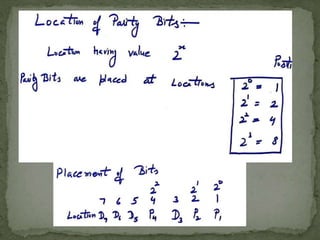 Location of Parity Bits:-
Location having value 2^x
Parity Bits are placed at Locations
2^0 = 1
2^1 = 2
2^2 = 4
2^3 = 8
Placement of Bits
2^2 2^1 2^0
7 6 5 4 3 2 1
Location D7 D6 D5 P4 D3 P2 P1